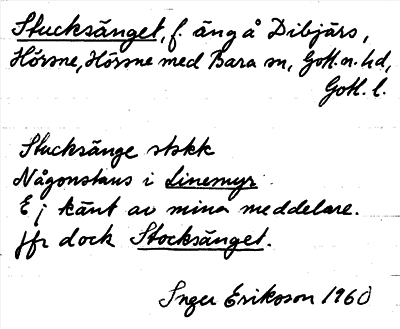 Stucksänget, f. äng å Dibjärs,
Hörsne, Hörsne med Bara sn, Gotl. n. hd,
Gotl. l.
Stucksänge stskk
Någonstans i Linemyr
Ej känt av mina meddelare.
Jfr dock Stocksänget.
Inger Erikoson 1960